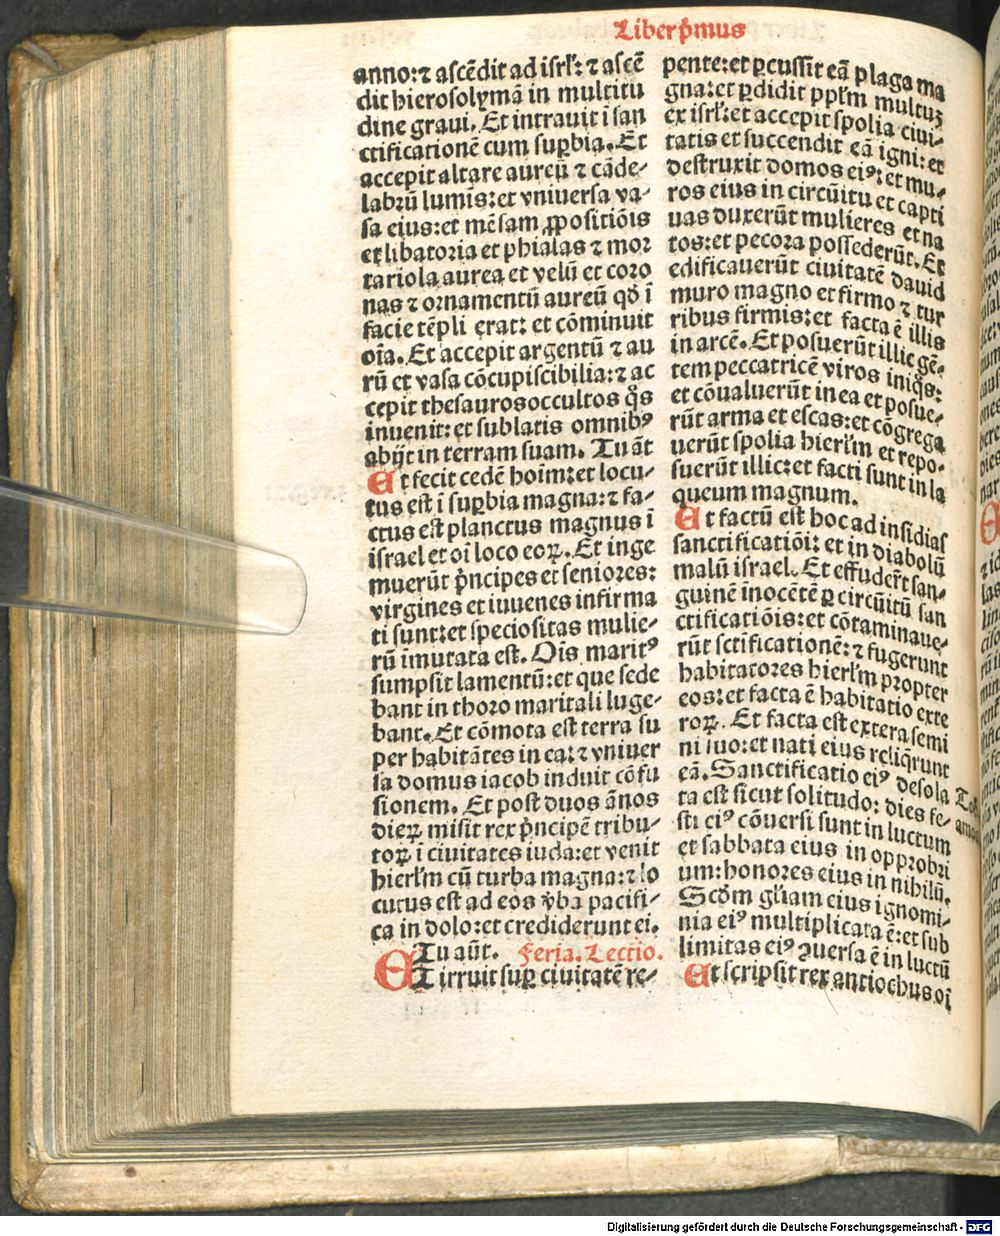 Liber p̄mus
anno: ⁊ ascēdit ad isrl': ⁊ ascē
dit hierosolymā in multitu
dine graui. Et intrauit ī san
ctificationē cum suꝑbia. Et
accepit altare aureū ⁊ cāde-
labꝛū lumīs: et vniuersa va-
sa eius: et mēsam ꝓpositiōis
et libatoria et phialas ⁊ moꝛ
tariola aurea et velū et coꝛo
nas ⁊ oꝛnamentū aureū qd̄ ī
facie tēpli erat: et cōminuit
oīa. Et accepit argentū ⁊ au
rū et vasa cōcupiscibilia: ⁊ ac
cepit thesauros occultos q̊s
inuenit: et sublatis omnibꝰ
abijt in terram suam. Tu āt
Et fecit cedē hoīm: et locu-
tus est ī suꝑbia magna: ⁊ fa-
ctus est planctus magnus ī
israel et oī loco eoꝝ. Et inge
muerūt p̄ncipes et senioꝛes:
virgines et iuuenes infirma
ti sunt: et speciositas mulie-
rū īmutata est. Oīs maritꝰ
sumpsit lamentū: et que sede
bant in thoꝛo maritali luge-
bant. Et cōmota est terra su
per habitātes in ea: ⁊ vniuer
sa domus iacob induit cōfu
sionem. Et post duos ānos
dieꝝ misit rex p̄ncipē tribu-
toꝝ ī ciuitates iuda: et venit
hierl'm cū turba magna: ⁊ lo
cutus est ad eos v̄ba pacifi-
ca in dolo: et crediderunt ei.
Tu aūt. Feria. Lectio.
ET irruit suꝑ ciuitatē re-
pente: et ꝑcussit eā plaga ma
gna: et ꝑdidit ppl'm multuꝫ
ex isrl': et accepit spolia ciui-
tatis et succendit eā igni: et
destruxit domos eiꝰ: et mu-
ros eius in circūitu et capti
uas duxerūt mulieres et na
tos: et pecoꝛa possederūt. Et
edificauerūt ciuitatē dauid
muro magno et firmo ⁊ tur
ribus firmis: et facta ē illis
in arcē. Et posuerūt illic gē-
tem peccatricē viros iniq̊s:
et cōualuerūt in ea et posue-
rūt arma et escas: et cōgrega
uerūt spolia hierl'm et repo-
suerūt illic: et facti sunt in la
queum magnum.
Et factū est hoc ad insidias
sanctificatiōi: et in diabolū
malū israel. Et effuder̄t san-
guinē inocētē ꝑ circūitū san
ctificatiōis: et cōtaminaue-
rūt sctificationē: ⁊ fugerunt
habitatoꝛes hierl'm propter
eos: et facta ē habitatio exte
roꝝ. Et facta est extera semi
ni suo: et nati eius reliq̄runt
eā. Sanctificatio eiꝰ desola
ta est sicut solitudo: dies fe-
sti eiꝰ cōuersi sunt in luctum
et sabbata eius in oppꝛobꝛi
um: honoꝛes eius in nihilū.
Scd̄m gl'iam eius ignomi-
nia eiꝰ multiplicata ē: et sub
limitas eiꝰ ꝯuersa ē in luctū
Et scripsit rex antiochus oī
Digitalisierung gefördert durch die Deutsche Forschungsgemeinschaft - DFG